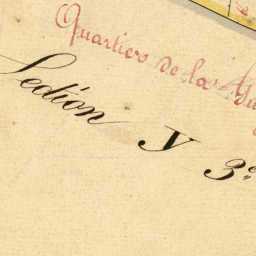 Quartiers de la
Section Y 3e